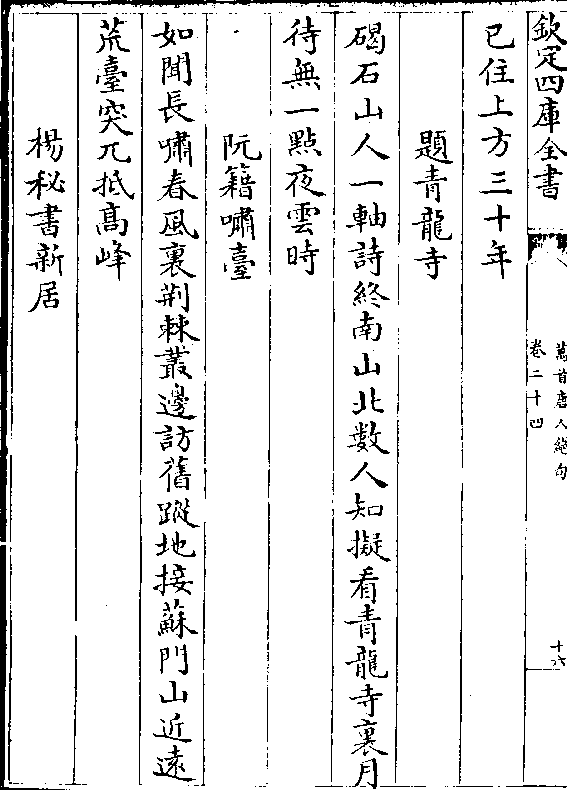 欽定四庫全書
萬首唐人絕句
卷二十四
十六
已住上方三十年
題青龍寺
碣石山人一軸詩終南山北數人知擬看青龍寺裏月
待無一點夜雲時
阮籍嘯臺
如聞長嘯春風裏荆棘叢邊訪舊蹤地接蘇門山近遠
荒臺突兀抵高峰
楊秘書新居